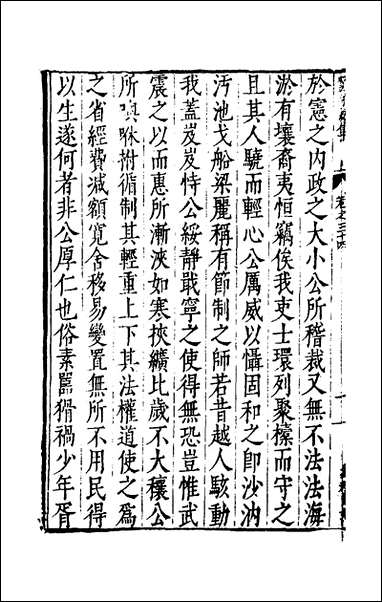 於憲之內政之大小公所稽裁又無不法法海
淤有壤裔夷恒竊俟我吏士環列聚㯓而守之
且其人驍而輕心公厲威以懾固和之卽沙汭
汚池戈船梁麗稱有節制之師若昔越人駭動
我蓋岌岌恃公綏靜戢寧之使得無恐豈惟武
震之以而惠所漸浹如寒挾纊比歲不大穰公
所嗅咻拊循制其輕重上下其法權道使之爲
之省經費減額寬舍移易變置無所不用民得
以生遂何者非公厚仁也俗素嚚猾禍少年胥
卷之三十四